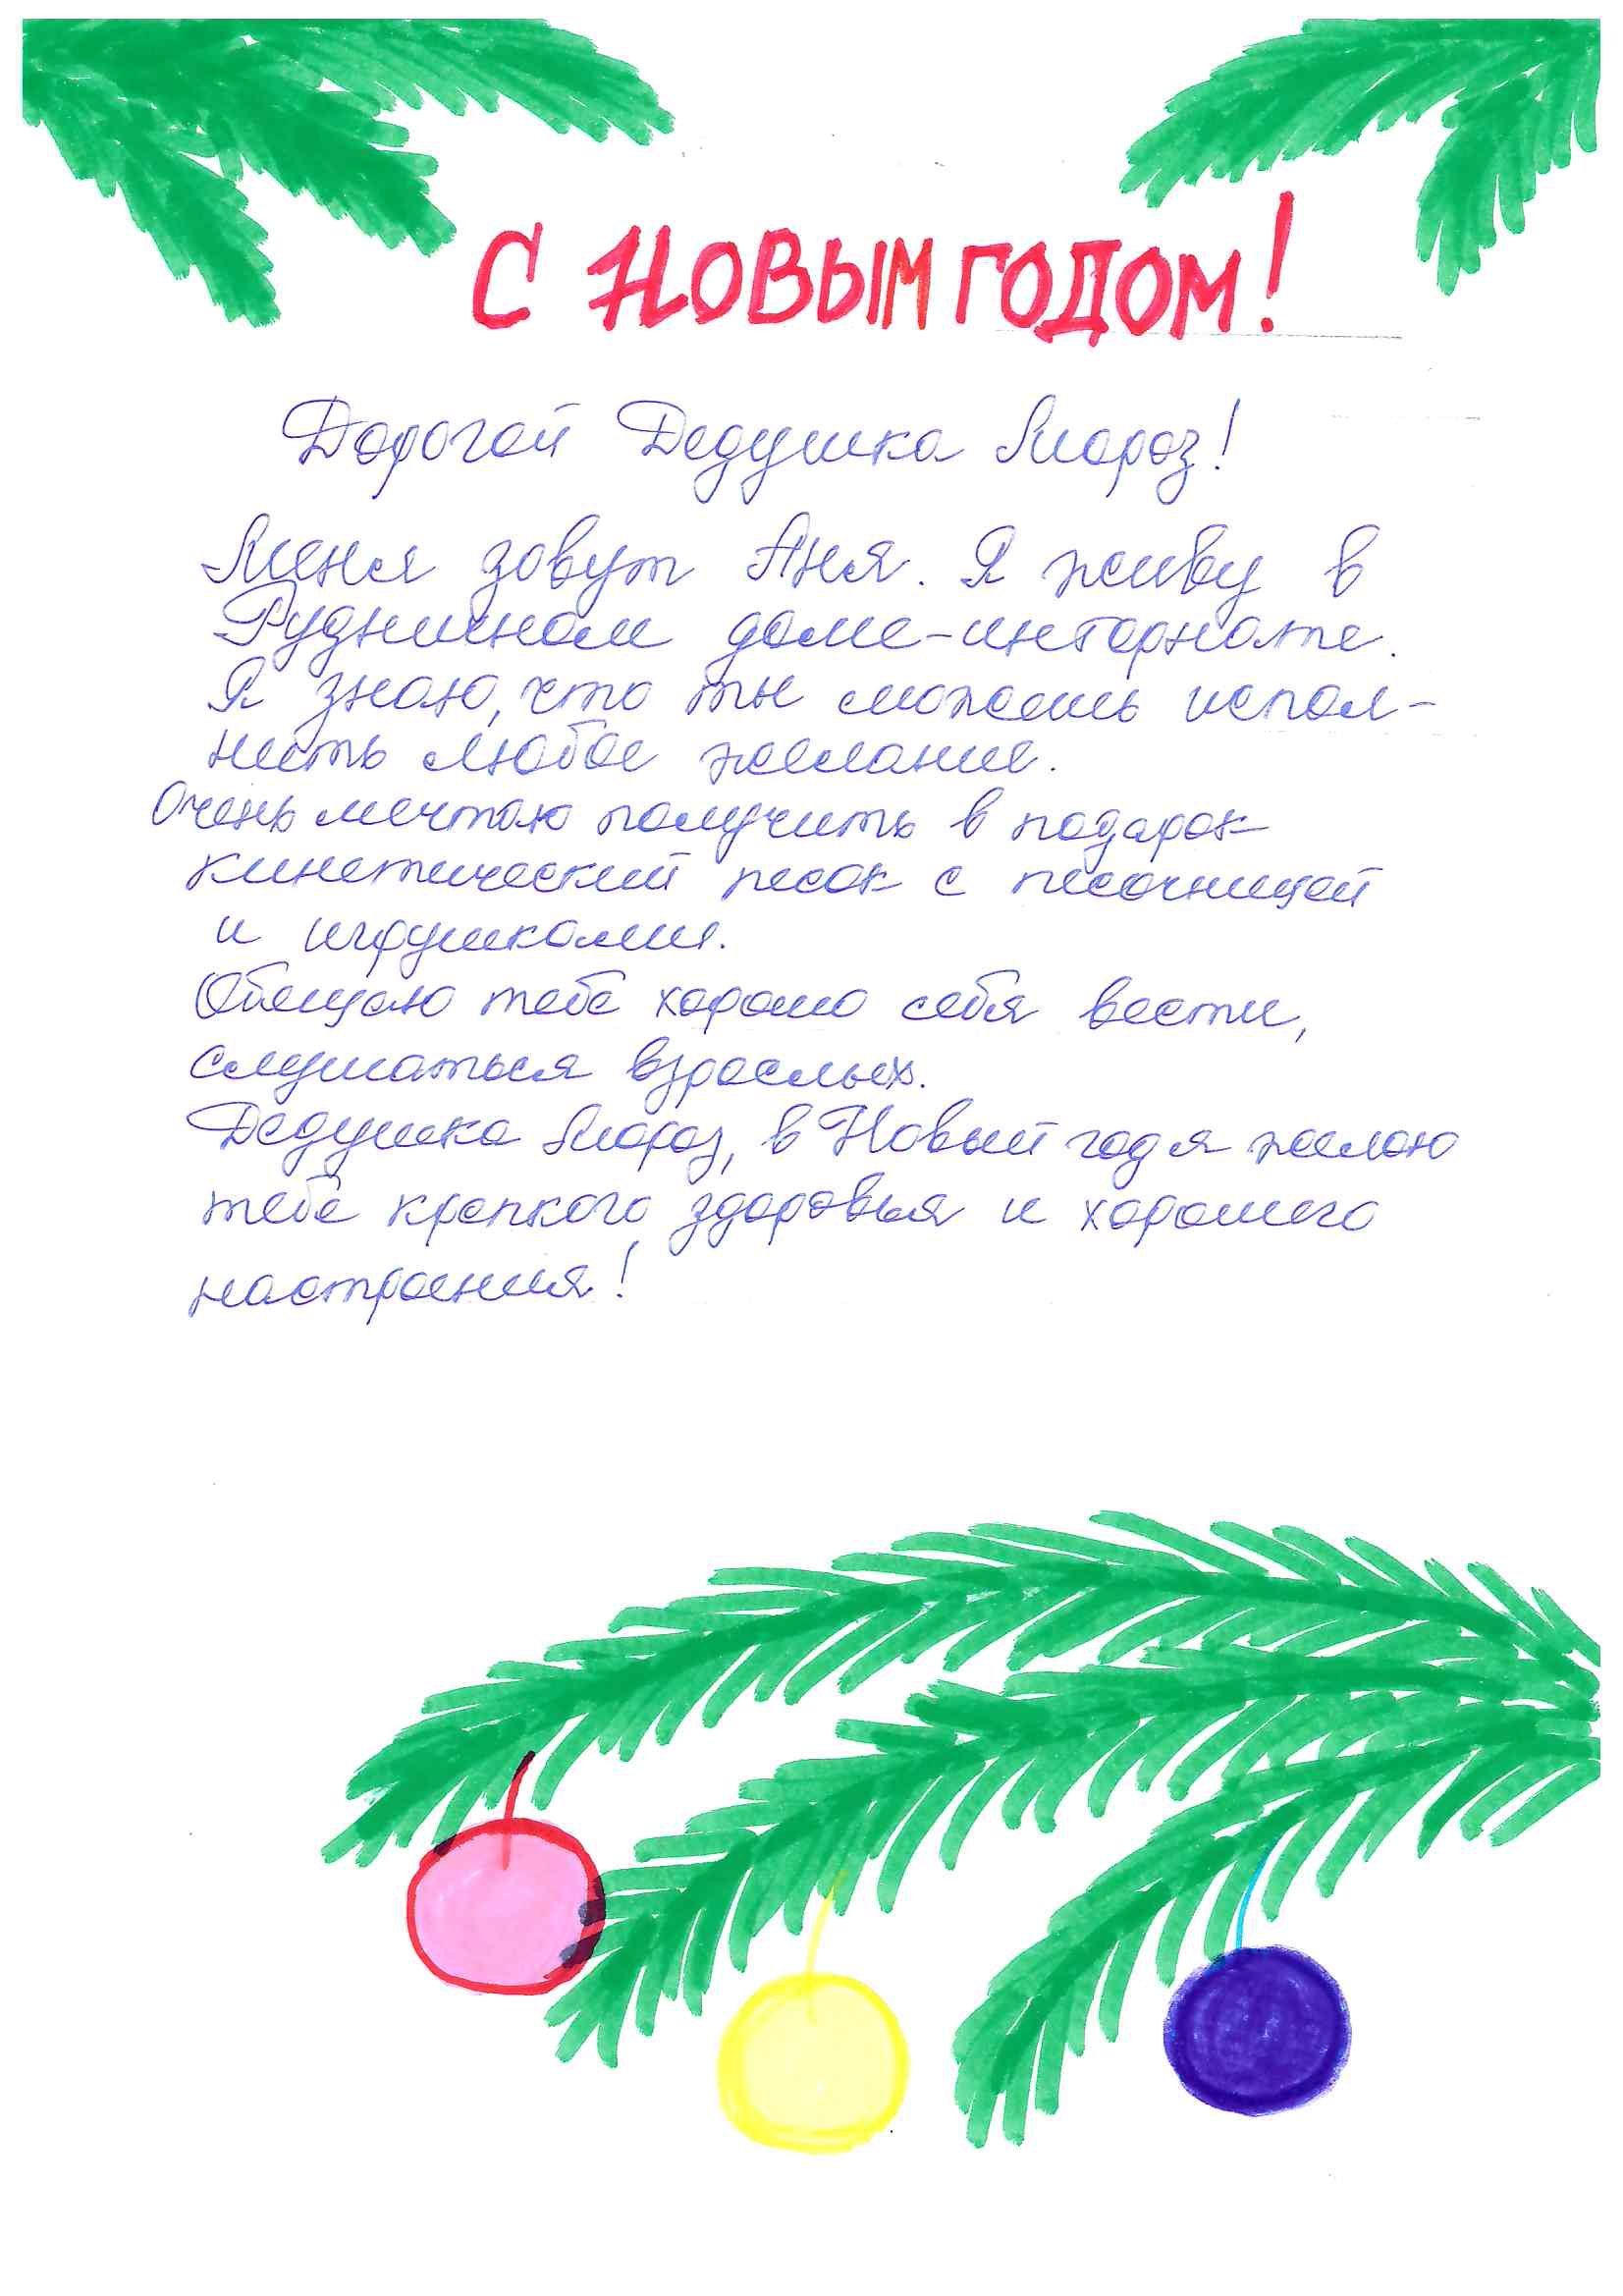 С НОВЫМ ГОДОМ!
Дорогой Дедушка Мороз!
Меня зовут Аня. Я живу в
Рудничном доме-интернате.
Я знаю, что ты можешь испол-
нить любое желание.
Очень мечтаю получить в подарок
кинетический песок с песочницей
и игрушками.
Обещаю тебе хорошо себя вести,
слушаться взрослых.
Дедушка Мороз, в Новый год я желаю
тебе крепкого здоровья и хорошего
настроения!